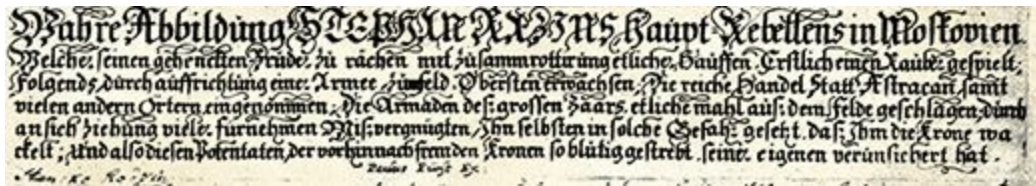 Wahre Abbildung STEPHAN RAZINS Haupt Rebellens in Moskovien
Welcher seinen gehenckten Bruder zu rächen mit zusammrottirung etlicher Hauffen Erstlich einen Rauber gespielt,
Folgends durch auffrichtung einer Armee zum feld Obersten erwachsen, Die reiche Handel Statt Astracan, samt
vielen andern Örtern eingenommen, Die Armaden des grossen Zaars etliche mahl aus dem Felde geschlagen, durch
an sich ziehung vieler fürnehmen Misvergnügten, Ihn selbsten in solche Gefahr gesetzt das Ihm die Krone wa
ckelt; und also diesen Potentaten, der vorhin nach fremden Kronen so blütig gestrebt, seiner eigenen verunsichert hat.